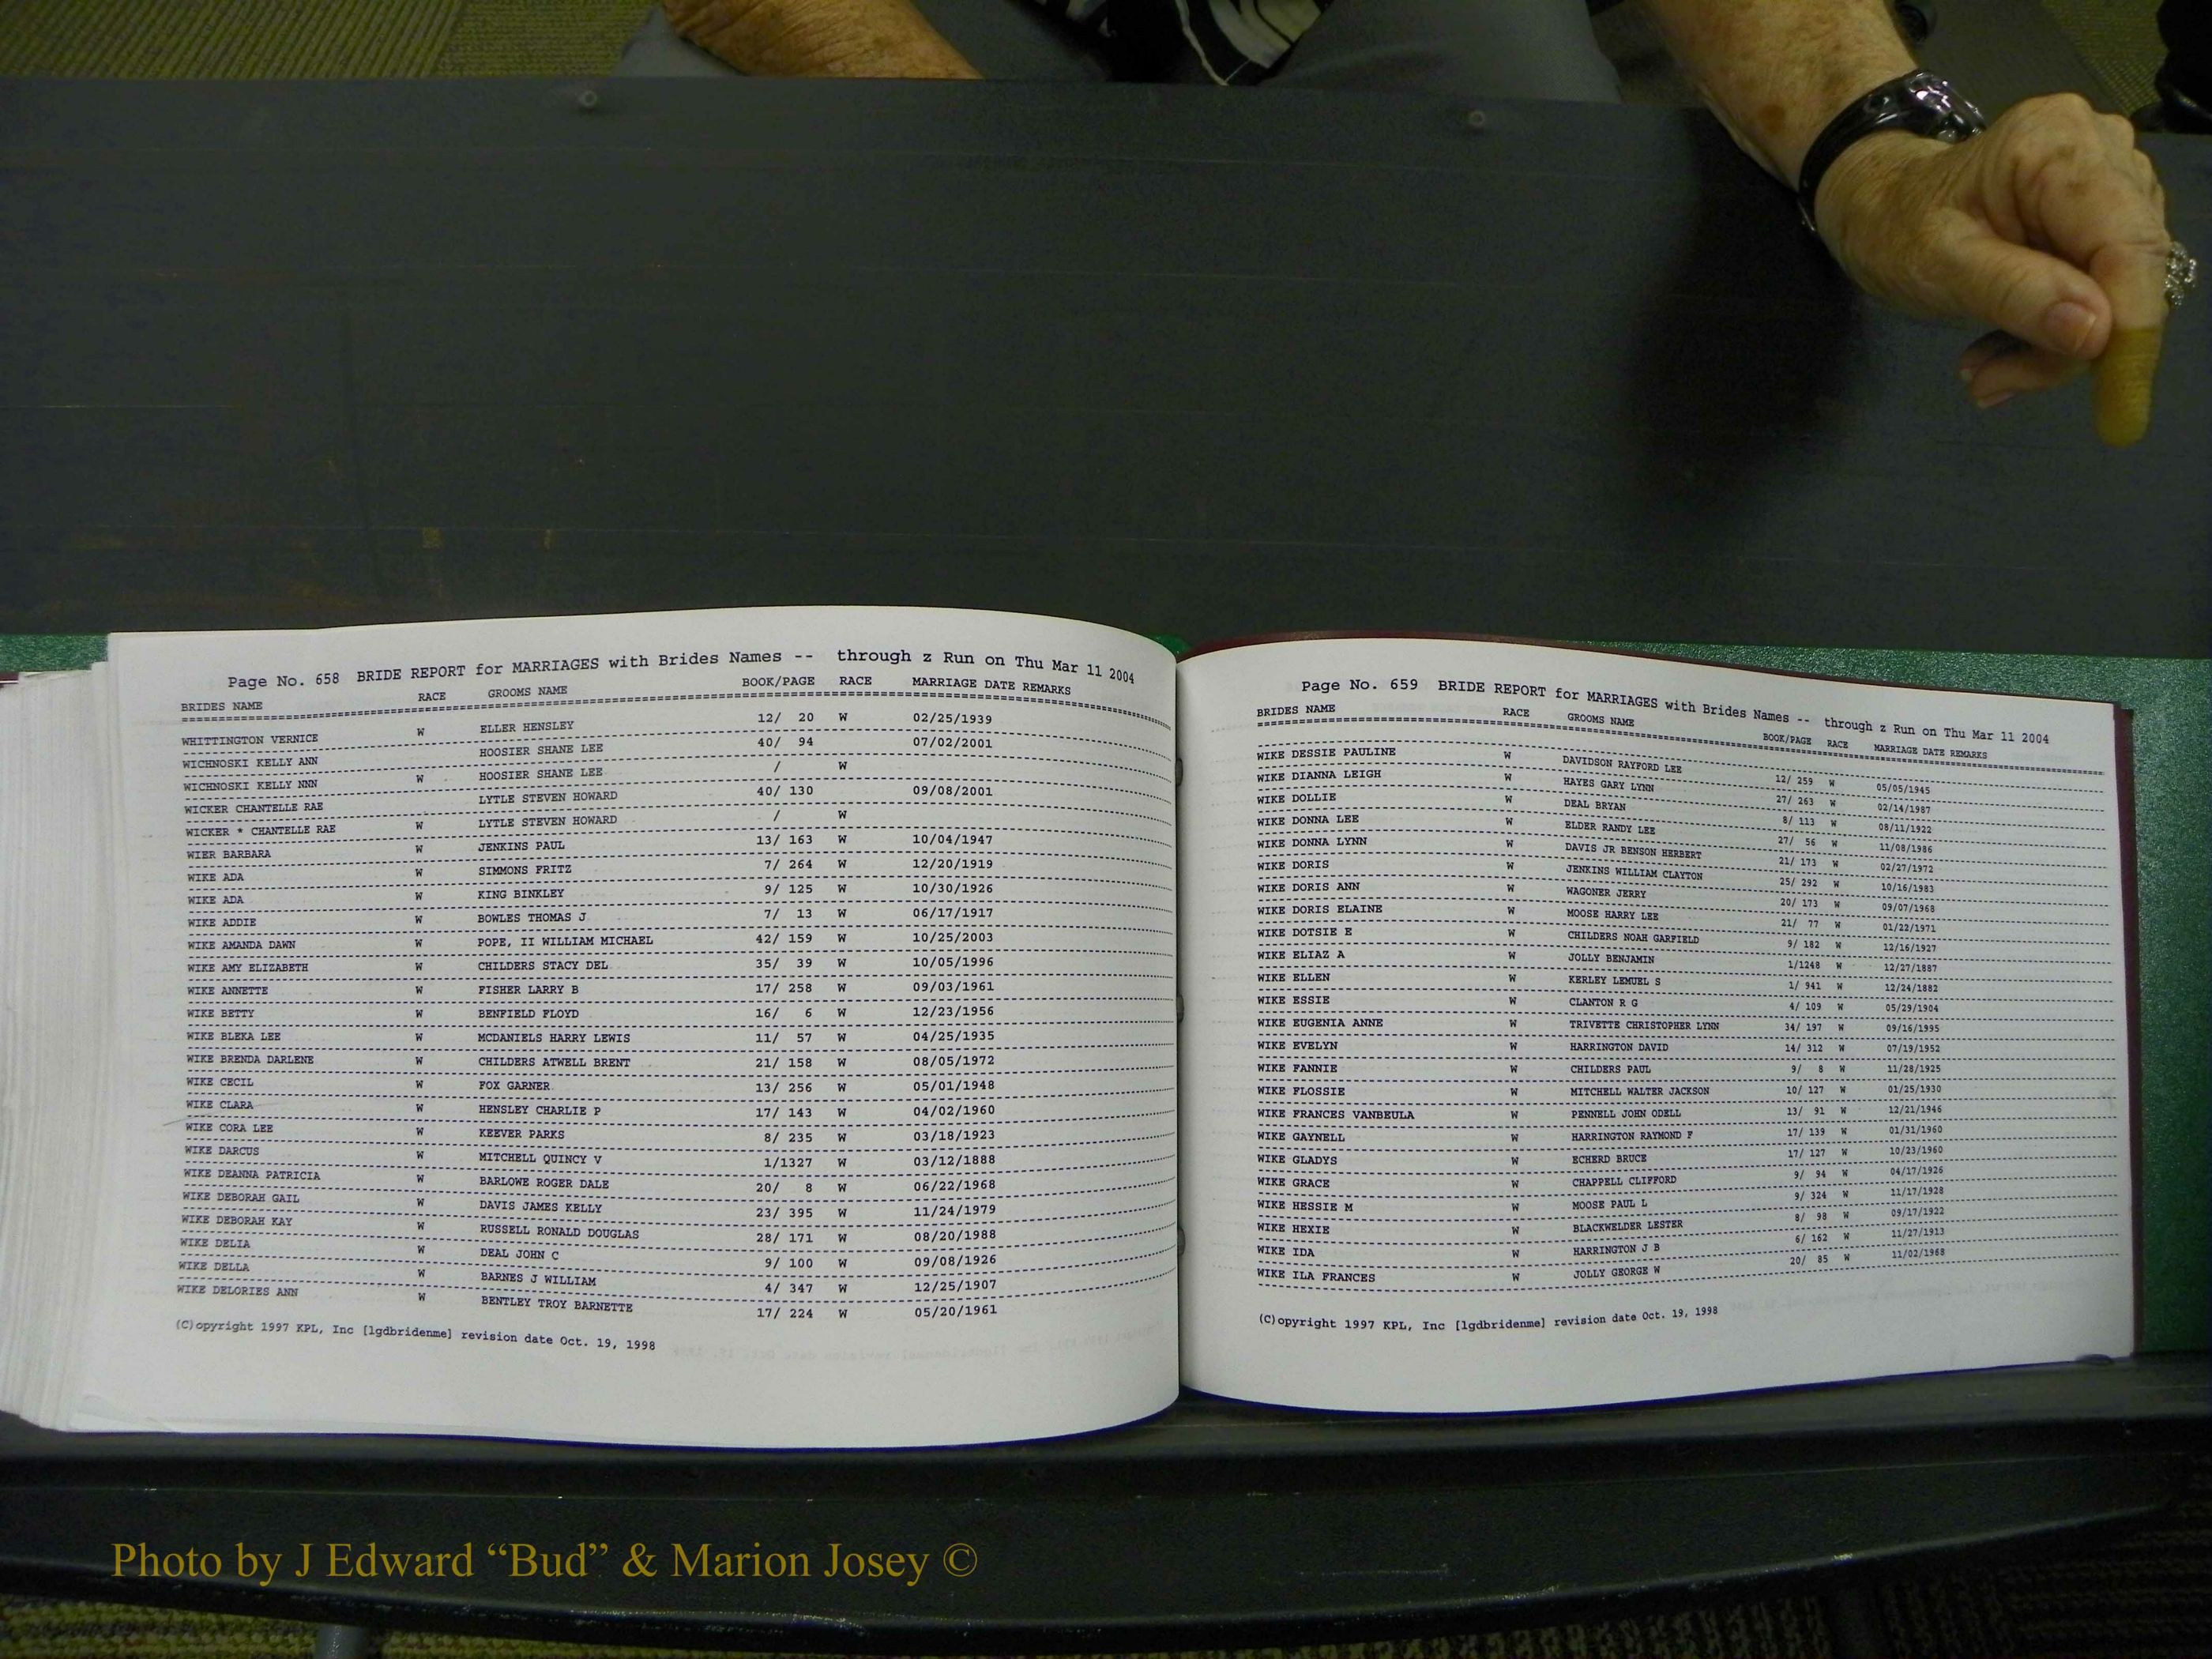 Page No. 658 BRIDE REPORT for MARRIAGES with Brides Names -- through z Run on Thu Mar 11 2004
BRIDES NAME RACE GROOMS NAME BOOK/PAGE RACE MARRIAGE DATE REMARKS
WHITTINGTON VERNICE W ELLER HENSLEY 12/ 20 W 02/25/1939
WICHNOSKI KELLY ANN HOOSIER SHANE LEE 40/ 94 07/02/2001
WICHNOSKI KELLY NNN W HOOSIER SHANE LEE / W
WICKER CHANTELLE RAE LYTLE STEVEN HOWARD 40/ 130 09/08/2001
WICKER * CHANTELLE RAE W LYTLE STEVEN HOWARD / W
WIER BARBARA W JENKINS PAUL 13/ 163 W 10/04/1947
WIKE ADA W SIMMONS FRITZ 7/ 264 W 12/20/1919
WIKE ADA W KING BINKLEY 9/ 125 W 10/30/1926
WIKE ADDIE W BOWLES THOMAS J 7/ 13 W 06/17/1917
WIKE AMANDA DAWN W POPE, II WILLIAM MICHAEL 42/ 159 W 10/25/2003
WIKE AMY ELIZABETH W CHILDERS STACY DEL 35/ 39 W 10/05/1996
WIKE ANNETTE W FISHER LARRY B 17/ 258 W 09/03/1961
WIKE BETTY W BENFIELD FLOYD 16/ 6 W 12/23/1956
WIKE BLEKA LEE W MCDANIELS HARRY LEWIS 11/ 57 W 04/25/1935
WIKE BRENDA DARLENE W CHILDERS ATWELL BRENT 21/ 158 W 08/05/1972
WIKE CECIL W FOX GARNER 13/ 256 W 05/01/1948
WIKE CLARA W HENSLEY CHARLIE P 17/ 143 W 04/02/1960
WIKE CORA LEE W KEEVER PARKS 8/ 235 W 03/18/1923
WIKE DARCUS W MITCHELL QUINCY V 1/1327 W 03/12/1888
WIKE DEANNA PATRICIA W BARLOWE ROGER DALE 20/ 8 W 06/22/1968
WIKE DEBORAH GAIL W DAVIS JAMES KELLY 23/ 395 W 11/24/1979
WIKE DEBORAH KAY W RUSSELL RONALD DOUGLAS 28/ 171 W 08/20/1988
WIKE DELIA W DEAL JOHN C 9/ 100 W 09/08/1926
WIKE DELLA W BARNES J WILLIAM 4/ 347 W 12/25/1907
WIKE DELORIES ANN W BENTLEY TROY BARNETTE 17/ 224 W 05/20/1961
(C)opyright 1997 KPL, Inc [lgdbridenme] revision date Oct. 19, 1998
Page No. 659 BRIDE REPORT for MARRIAGES with Brides Names -- through z Run on Thu Mar 11 2004
BRIDES NAME RACE GROOMS NAME BOOK/PAGE RACE MARRIAGE DATE REMARKS
WIKE DESSIE PAULINE W DAVIDSON RAYFORD LEE 12/ 259 W 05/05/1945
WIKE DIANNA LEIGH W HAYES GARY LYNN 27/ 263 W 02/14/1987
WIKE DOLLIE W DEAL BRYAN 8/ 113 W 08/11/1922
WIKE DONNA LEE W ELDER RANDY LEE 27/ 56 W 11/08/1986
WIKE DONNA LYNN W DAVIS JR BENSON HERBERT 21/ 173 W 02/27/1972
WIKE DORIS W JENKINS WILLIAM CLAYTON 25/ 292 W 10/16/1983
WIKE DORIS ANN W WAGONER JERRY 20/ 173 W 09/07/1968
WIKE DORIS ELAINE W MOOSE HARRY LEE 21/ 77 W 01/22/1971
WIKE DOTSIE E W CHILDERS NOAH GARFIELD 9/ 182 W 12/16/1927
WIKE ELIAZ A W JOLLY BENJAMIN 1/1248 W 12/27/1887
WIKE ELLEN W KERLEY LEMUEL S 1/ 941 W 12/24/1882
WIKE ESSIE W CLANTON R G 4/ 109 W 05/29/1904
WIKE EUGENIA ANNE W TRIVETTE CHRISTOPHER LYNN 34/ 197 W 09/16/1995
WIKE EVELYN W HARRINGTON DAVID 14/ 312 W 07/19/1952
WIKE FANNIE W CHILDERS PAUL 9/ 8 W 11/28/1925
WIKE FLOSSIE W MITCHELL WALTER JACKSON 10/ 127 W 01/25/1930
WIKE FRANCES VANBEULA W PENNELL JOHN ODELL 13/ 91 W 12/21/1946
WIKE GAYNELL W HARRINGTON RAYMOND F 17/ 139 W 01/31/1960
WIKE GLADYS W ECHERD BRUCE 17/ 127 W 10/23/1960
WIKE GRACE W CHAPPELL CLIFFORD 9/ 94 W 04/17/1926
WIKE HESSIE M W MOOSE PAUL L 9/ 324 W 11/17/1928
WIKE HEXIE W BLACKWELDER LESTER 8/ 98 W 09/17/1922
WIKE IDA W HARRINGTON J B 6/ 162 W 11/27/1913
WIKE ILA FRANCES W JOLLY GEORGE W 20/ 85 W 11/02/1968
(C)opyright 1997 KPL, Inc [lgdbridenme] revision date Oct. 19, 1998
Photo by J Edward “Bud” & Marion Josey ©